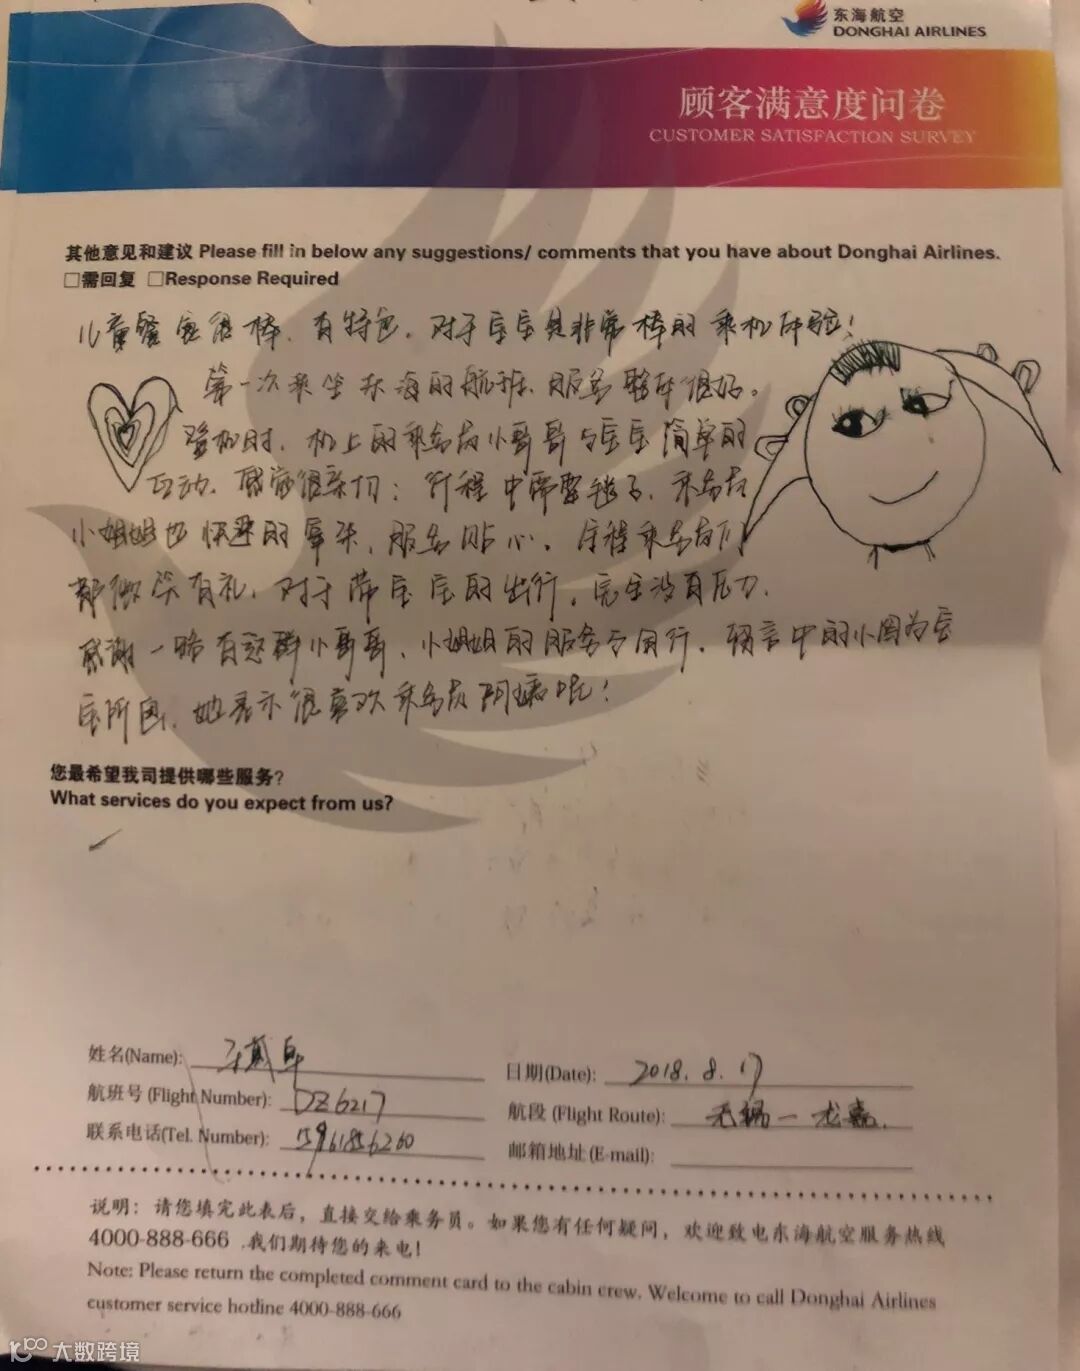 东海航空
DONGHAI AIRLINES
顾客满意度问卷
CUSTOMER SATISFACTION SURVEY
其他意见和建议 Please fill in below any suggestions/ comments that you have about Donghai Airlines.
□需回复 □Response Required
儿童餐 很棒、有特色，对于宝宝是非常棒的乘机体验！
第一次乘坐东海的航班，服务整体很好。
登机时，机上的乘务员小哥哥与宝宝简单的
互动，感觉很亲切；行程中需要毯子，乘务员
小姐姐也快速的拿来，服务贴心。全程乘务员们
都微笑有礼，对于带宝宝的出行，完全没有压力。
感谢一路有这群小哥哥、小姐姐的服务与同行。留言中的小图为宝
宝所画，她表示很喜欢乘务员阿姨呢！
您最希望我司提供哪些服务?
What services do you expect from us?
姓名(Name):
日期(Date): 2018.8.17
航班号 (Flight Number): DZ6217
航段 (Flight Route): 无锡一龙嘉
联系电话(Tel. Number): 15961856260
邮箱地址 (E-mail):
说明：请您填完此表后，直接交给乘务员。如果您有任何疑问，欢迎致电东海航空服务热线
4000-888-666 ,我们期待您的来电!
Note: Please return the completed comment card to the cabin crew. Welcome to call Donghai Airlines
customer service hotline 4000-888-666
大数跨境